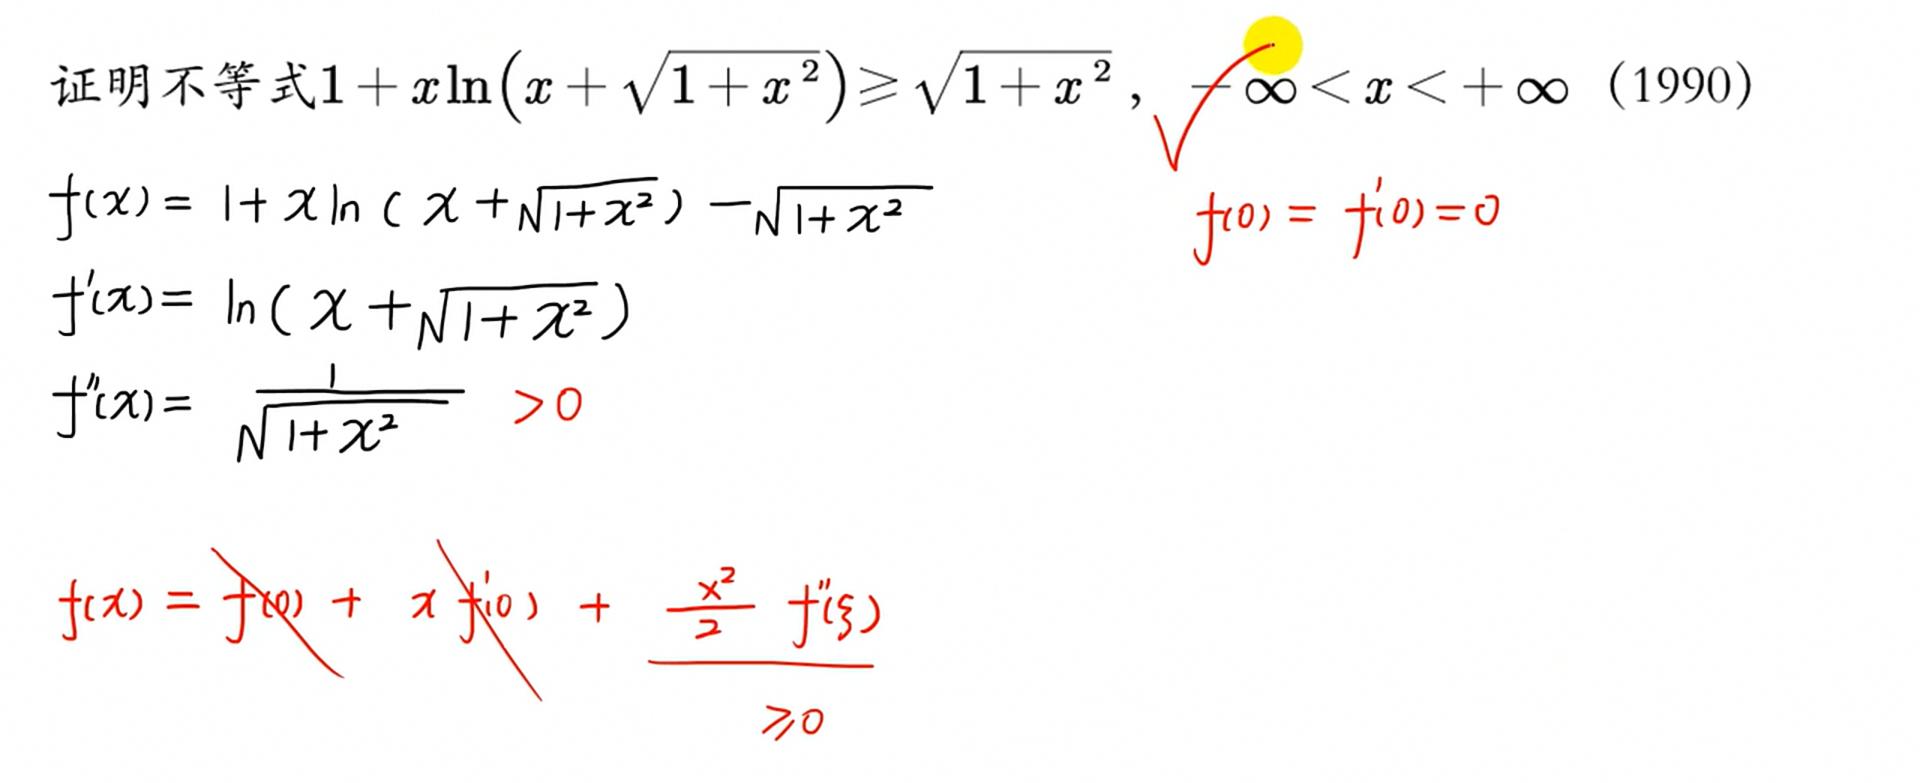 证明不等式1+xln(x+√(1+x²))⩾√(1+x²), −∞<x<+∞ (1990)
f(x)= 1+xln(x+√(1+x²))−√(1+x²)
f(0)=f'(0)=0
f'(x)= ln(x+√(1+x²))
f''(x)= 1/√(1+x²) >0
f(x)=f(0)+xf'(0)+x²/2 f''(ξ)
⩾0